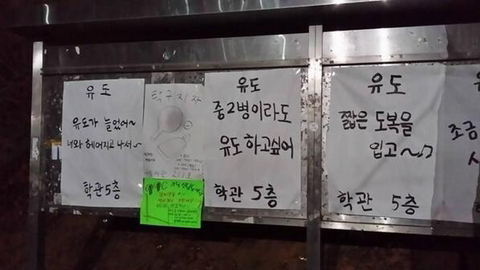 유도
유도가 늘었어~
너와 헤어지고 나서~
학관 5층
탁구치자
유도
중2병이라도
유도 하고싶어
학관 5층
유도
짧은 도복을
입고~♫
학관 5층
조금